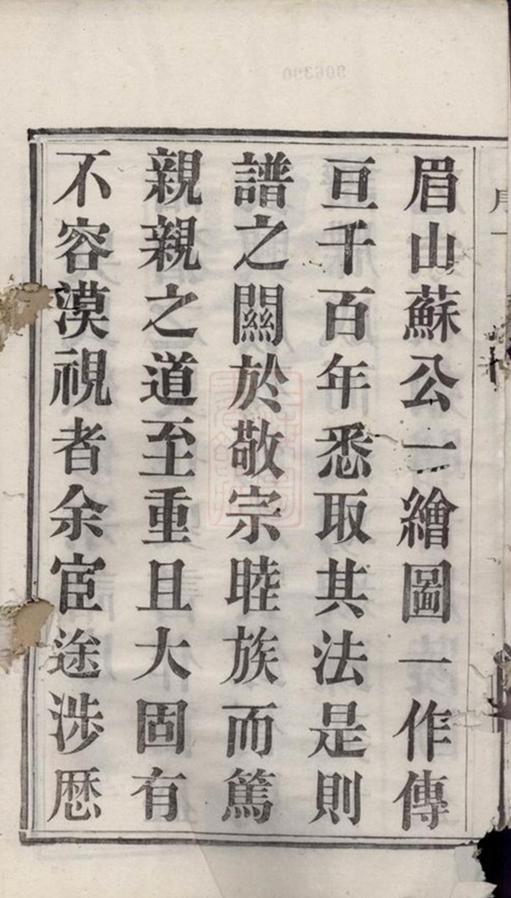 眉山蘇公一繪圖一作傳
亘千百年悉取其法是則
譜之關於敬宗睦族而篤
親親之道至重且大固有
不容漠視者余宦途涉歷
906390